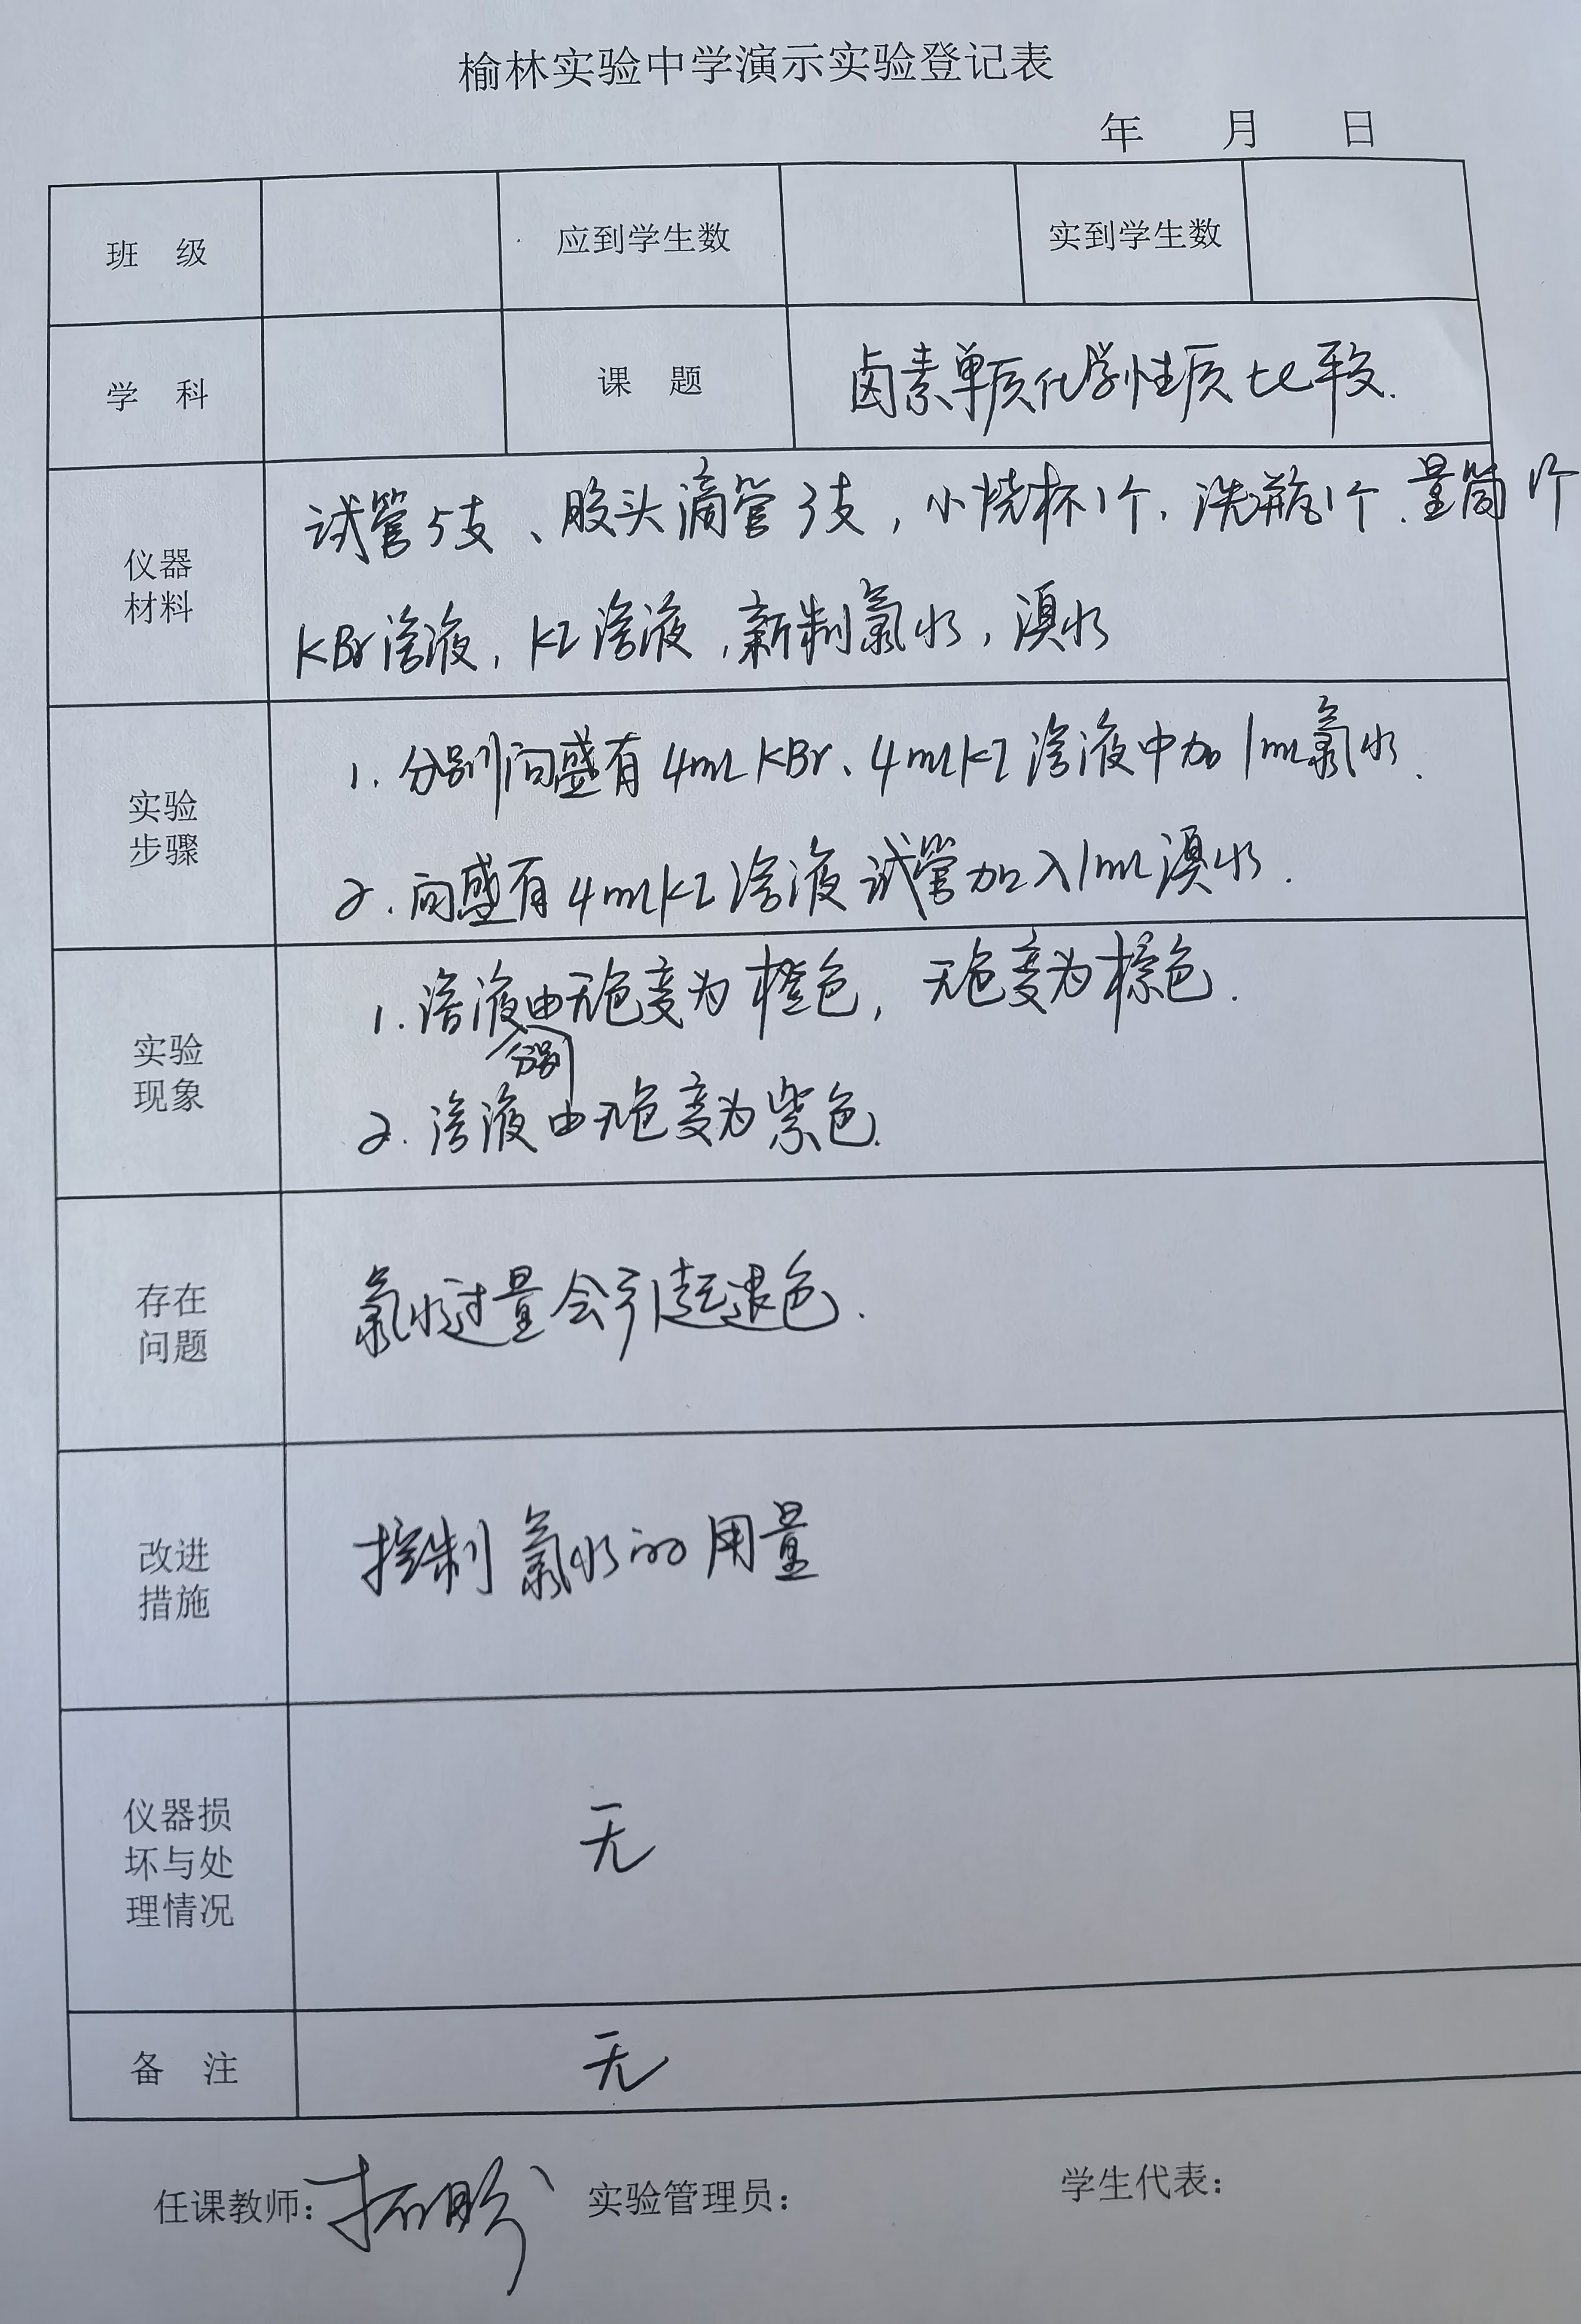 榆林实验中学演示实验登记表
年 月 日
班 级 应到学生数 实到学生数
学 科 课 题 卤素单质化学性质比较.
仪器
材料
试管5支、胶头滴管3支, 小烧杯1个. 洗瓶1个. 量筒1个
KBr溶液, KI溶液, 新制氯水, 溴水
实验
步骤
1. 分别向盛有4mLKBr、4mLKI溶液中加1mL氯水.
2. 向盛有4mLKI溶液试管加入1mL溴水.
实验
现象
1. 溶液由无色变为橙色, 无色变为棕色.
分别
2. 溶液由无色变为紫色.
存在
问题
氯水过量会引起退色.
改进
措施
控制氯水的用量
仪器损
坏与处
理情况
无
备 注 无
任课教师: 实验管理员: 学生代表: